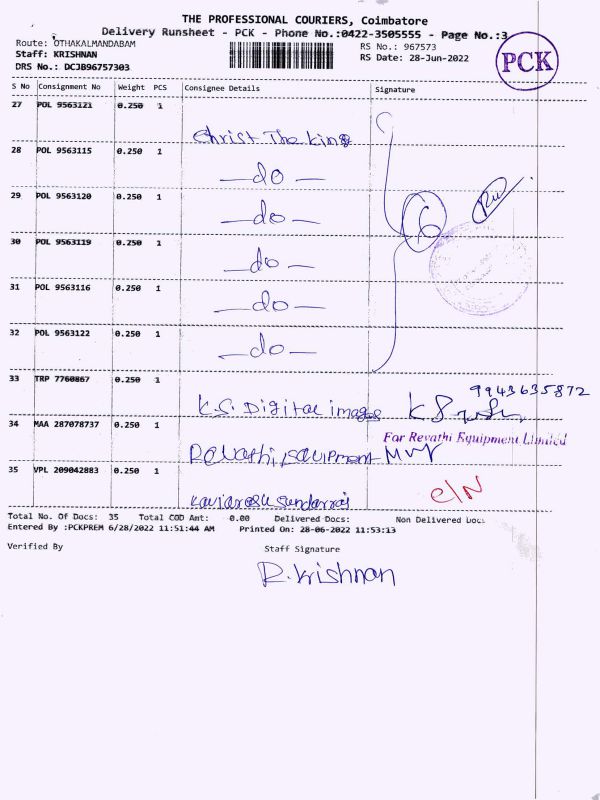 THE PROFESSIONAL COURIERS, Coimbatore
Delivery Runsheet - PCK - Phone No.:0422-3505555 - Page No.:3
Route: OTHAKALMANDABAM
Staff: KRISHNAN
DRS No.: DCJB96757303
RS No.: 967573
RS Date: 28-Jun-2022
PCK
S No Consignment No Weight PCS Consignee Details Signature
27 POL 9563121 0.250 1
Christ The King
28 POL 9563115 0.250 1
—do—
29 POL 9563120 0.250 1
—do—
6
30 POL 9563119 0.250 1
—do—
31 POL 9563116 0.250 1
—do—
32 POL 9563122 0.250 1
—do—
33 TRP 7760867 0.250 1
9943635872
K.S. Digital images
34 MAA 287078737 0.250 1
For Revathi Equipment Limited
Revathi, Equipment
35 VPL 209042883 0.250 1
C/N
Total No. Of Docs: 35 Total COD Amt: 0.00 Delivered Docs: Non Delivered Docs
Entered By :PCKPREM 6/28/2022 11:51:44 AM Printed On: 28-06-2022 11:53:13
Verified By Staff Signature
R.Krishnan